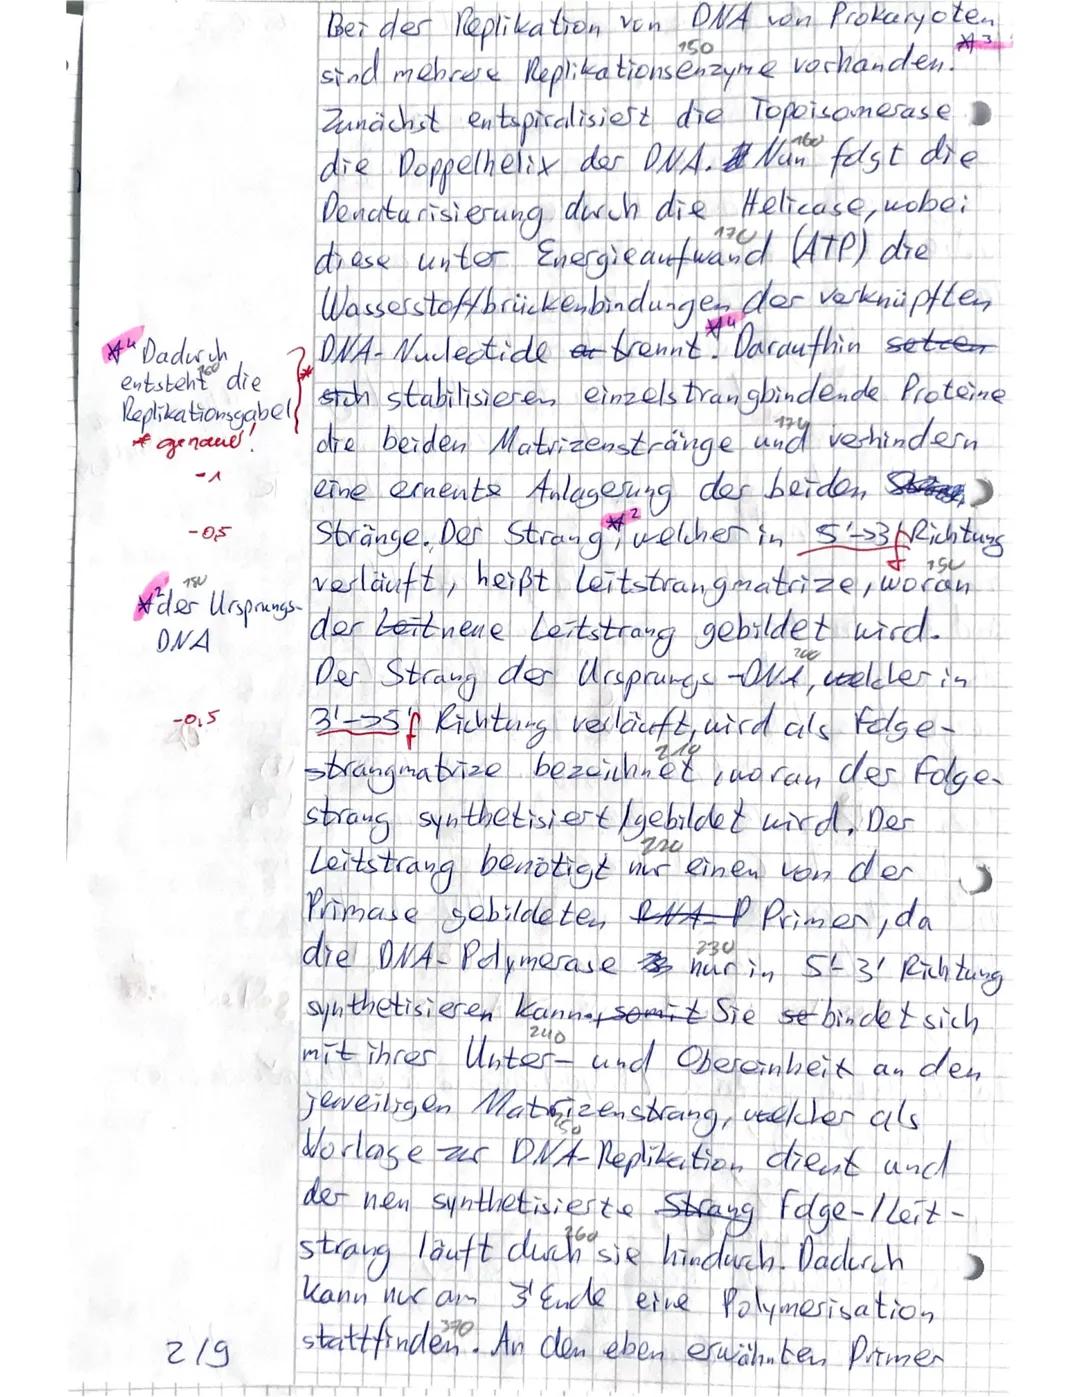 Bei der Replikation von DNA von Prokaryoten
*3
150
sind mehrere Replikationsenzyme vorhanden.
Zunächst entspiralisiert die Topoisomerase
160
die Doppelhelix der DNA. Nun folgt die
Denaturisierung durch die Helicase, wobei
170
diese unter Energieaufwand (ATP) die
Wasserstoffbrückenbindungen der verknüpften
DNA-Nucleotide er trennt. *4 Daraufhin setzen
sich stabilisieren einzelstrangbindende Proteine
die beiden Matrizenstränge und verhindern
eine erneute Anlagerung der beiden
Stränge. Der Strang *2, welcher in 5'->3' f Richtung
verläuft, heißt Leitstrangmatrize, woran
der Leit neue Leitstrang gebildet wird.
200
Der Strang der Ursprungs-DNA, welcher in
3'->5' f Richtung verläuft, wird als Folge-
210
strangmatrize bezeichnet, woran der Folge-
strang synthetisiert/gebildet wird. Der
220
Leitstrang benötigt nur einen von der
Primase gebildeten RNA-P Primer, da
230
die DNA-Polymerase nur in 5'-3' Richtung
synthetisieren kann, somit Sie se bindet sich
240
mit ihrer Unter- und Obereinheit an den
jeweiligen Matrizenstrang, welcher als
250
Vorlage zur DNA-Replikation dient und
der neu synthetisierte Strang Folge-/Leit-
260
strang läuft durch sie hindurch. Dadurch
kann nur am 3' Ende eine Polymerisation
stattfinden. An den eben erwähnten Primer
*4 Dadurch
entsteht die
Replikationsgabel
* genauer!
-1
-0,5
*2 der Ursprungs-
DNA
-0,5
2/9